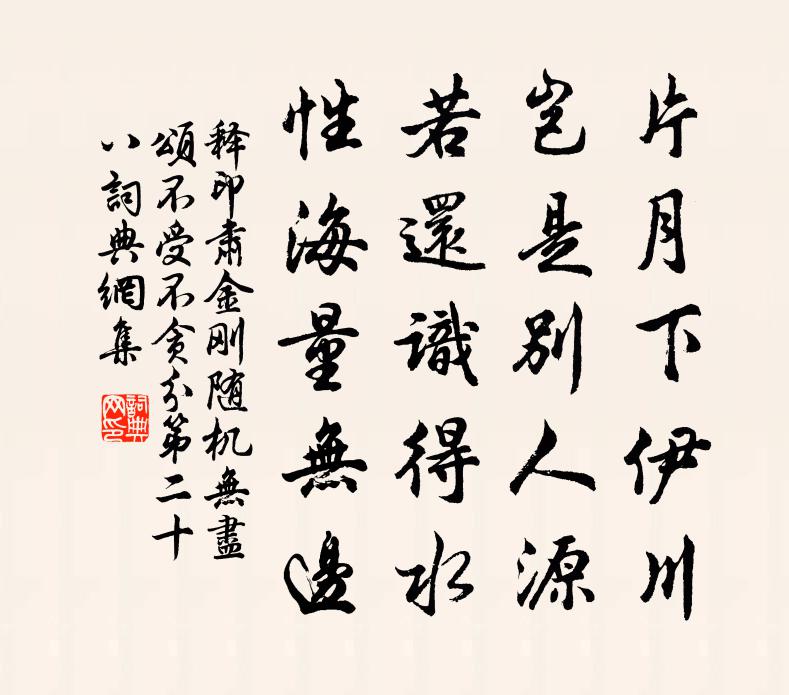 片月下伊川
豈是別人源
若還識得水
性海量無邊
释印肃金刚随机無盡
頌不受不贪分第二十
八詞典網集
詞典
网印